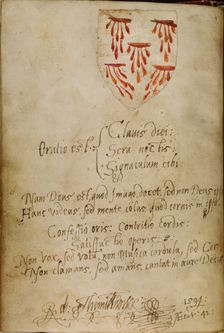 Clavis diei:
Oratio est Sera noctis:
Signaculum cibi:
Nam Deus est, quod Imago docet, sed non Deus
Hanc videas, sed mente colas quod cernis in
Confessio oris: Contritio cordis:
Satisfactio operis:
Non vox, sed votū, non Musica cordula, sed Cor
Non clamans, sed amans, cantat in aure Dei
1594